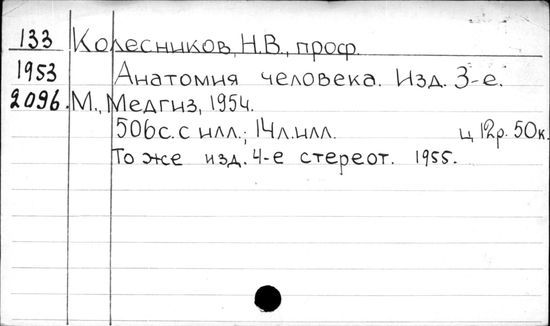 133 Колесников, Н.В., проф.
1953 Анатомия человека. Изд. 3-е.
2096. М., Медгиз, 1954.
506с. с илл.; 14л.илл. ц 12р. 50к.
То же изд. 4-е стереот. 1955.